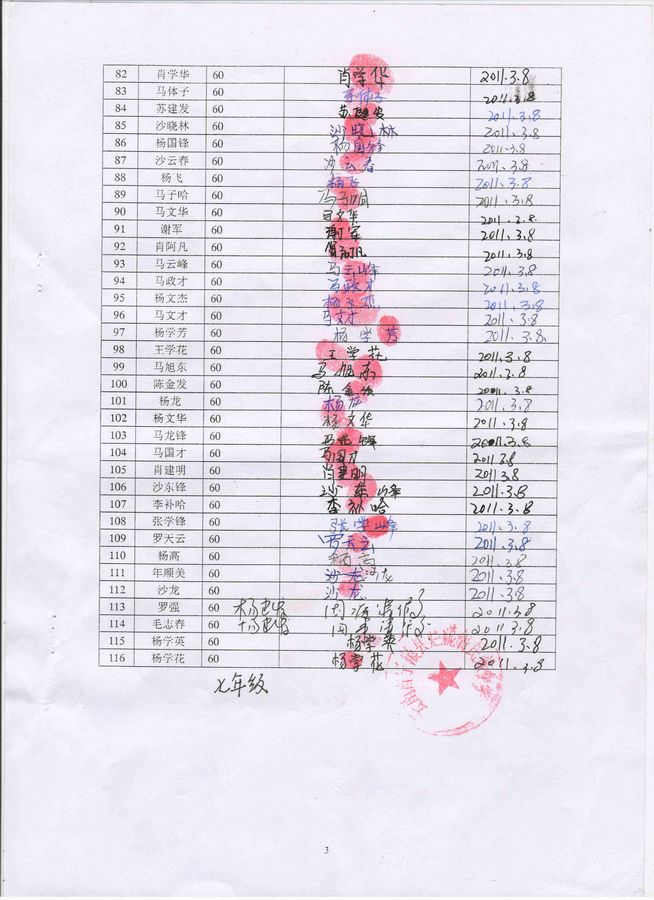 82 肖学华 60 肖学华 2011.3.8
83 马体子 60 马体子 2011.3.8
84 苏建发 60 苏建发 2011.3.8
85 沙晓林 60 沙晓林 2011.3.8
86 杨国锋 60 杨国锋 2011.3.8
87 沙云春 60 沙云春 2011.3.8
88 杨飞 60 杨飞 2011.3.8
89 马子哈 60 马子哈 2011.3.8
90 马文华 60 马文华 2011.3.8
91 谢军 60 谢军 2011.3.8
92 肖阿凡 60 肖阿凡 2011.3.8
93 马云峰 60 马云峰 2011.3.8
94 马政才 60 马政才 2011.3.8
95 杨文杰 60 杨文杰 2011.3.8
96 马文才 60 马文才 2011.3.8
97 杨学芳 60 杨学芳 2011.3.8
98 王学花 60 王学花 2011.3.8
99 马旭东 60 马旭东 2011.3.8
100 陈金发 60 陈金发 2011.3.8
101 杨龙 60 杨龙 2011.3.8
102 杨文华 60 杨文华 2011.3.8
103 马龙锋 60 马龙锋 2011.3.8
104 马国才 60 马国才 2011.3.8
105 肖建明 60 肖建明 2011.3.8
106 沙东锋 60 沙东峰 2011.3.8
107 李补哈 60 李补哈 2011.3.8
108 张学锋 60 张学峰 2011.3.8
109 罗天云 60 罗天云 2011.3.8
110 杨高 60 杨高 2011.3.8
111 年顺美 60 沙龙 2011.3.8
112 沙龙 60 沙龙 2011.3.8
113 罗强 60 2011.3.8
114 毛志春 60 2011.3.8
115 杨学英 60 杨学英 2011.3.8
116 杨学花 60 杨学花 2011.3.8
七年级
3